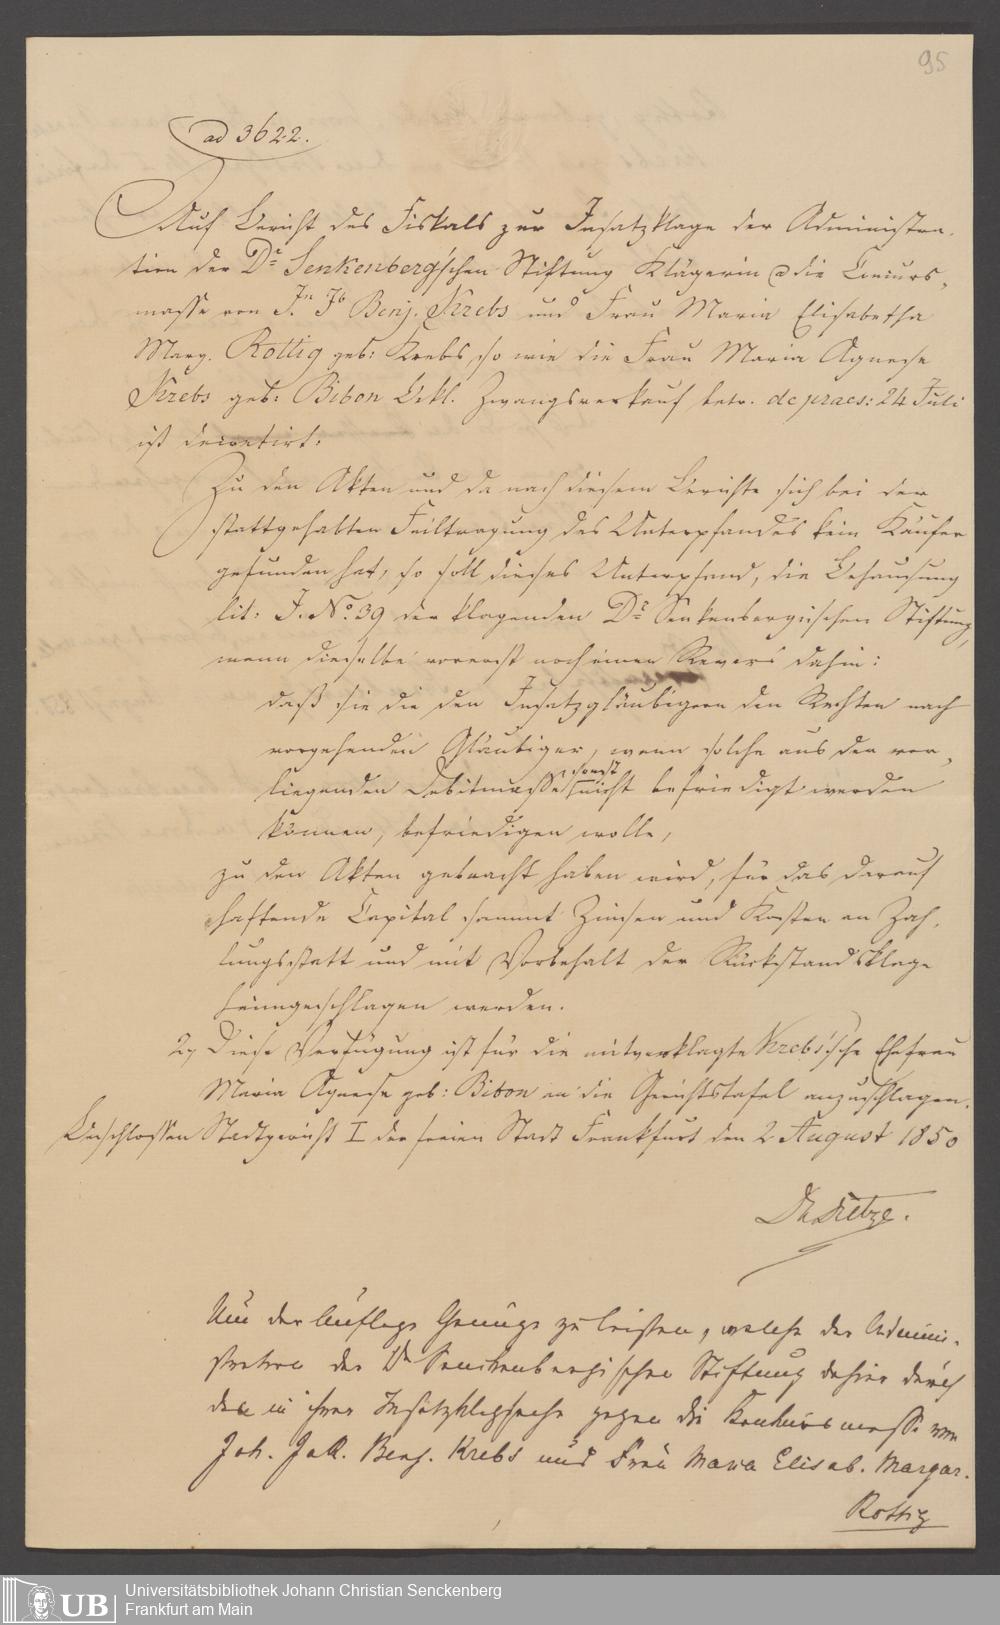 95
ad 3622.
Auf Bericht des Fiskals zur Insatzklage der Administra-
tion der Dr Senkenberg'schen Stiftung Klägerin die Concurs-
masse von Jn Jb Benj. Krebs und Frau Maria Elisabetha
Marg. Rottig geb: Krebs, so wie die Frau Maria Agnese
Krebs geb: Bibon Bekl. Zwangsverkauf betr. de praes: 24 Juli
ist decretirt:
Zu den Akten und da nach diesem Berichte sich bei der
stattgehabten Feiltragung des Unterpfandes kein Käufer
gefunden hat, so soll dieses Unterpfand, die Behausung
lit: J. No. 39 der klagenden Dr Senkenbergischen Stiftung,
wenn dieselbe vorerst noch einen Revers dahin:
daß sie die den Insatzgläubigern den Rechten nach
vorgehenden Gläubiger, wenn solche aus der vor-
liegenden Debitmasse sonst nicht befriedigt werden
können, befriedigen wolle,
zu den Akten gebracht haben wird, für das darauf
haftende Capital sammt Zinsen und Kosten an Zah-
lungsstatt und mit Vorbehalt der Rückstandsklage
heimgeschlagen werden.
2, Diese Verfügung ist für die mitverklagte Krebs'sche Ehefrau
Maria Agnese geb: Bibon an die Gerichtstafel anzuschlagen.
Beschlossen Stadtgericht I der freien Stadt Frankfurt den 2 August 1850
Um der Auflage Genüge zu leisten, welche der Admini-
stration der Dr Senckenbergischen Stiftung dahier durch
das in ihrer Insatzklagsache gegen die Konkursmasse von
Joh. Jak. Benj. Krebs und Frau Maria Elisab. Margar.
Rottig
UB
Universitätsbibliothek Johann Christian Senckenberg
Frankfurt am Main